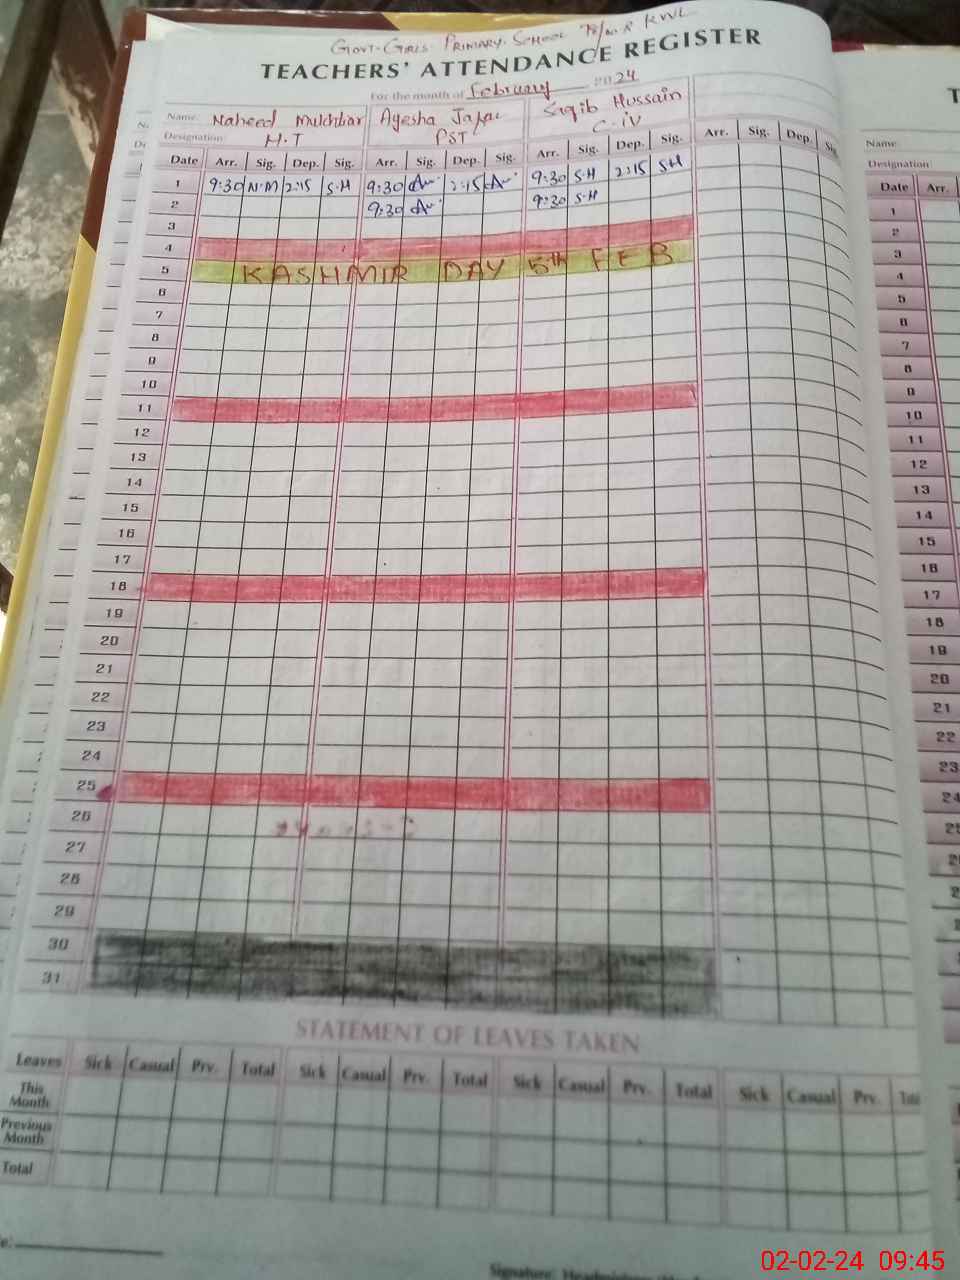 GOVT. GIRLS. PRIMARY. SCHOOL KWL
TEACHERS' ATTENDANCE REGISTER
For the month of February 2024
Name: Naheed Mukhtar Ayesha Jafar Saqib Hussain
Designation: H.T PST C-iV
Date Arr. Sig. Dep. Sig. Arr. Sig. Dep. Sig. Arr. Sig. Dep. Sig. Arr. Sig. Dep. Sig
1 9:30 N.M 2:15 S.H 9:30 2:15 9:30 S.H 2:15 S.H
2 9:30 9:30 S.H
3
4
5 KASHMIR DAY 5th FEB
6
7
8
9
10
11
12
13
14
15
16
17
18
19
20
21
22
23
24
25
26
27
28
29
30
31
STATEMENT OF LEAVES TAKEN
Leaves Sick Casual Prv. Total Sick Casual Prv. Total Sick Casual Prv. Total Sick Casual Prv.
This Month
Previous Month
Total
Signature:
Name:
Designation
Date Arr.
1
2
3
4
5
6
7
8
9
10
11
12
13
14
15
16
17
18
19
20
21
22
23
24
02-02-24 09:45